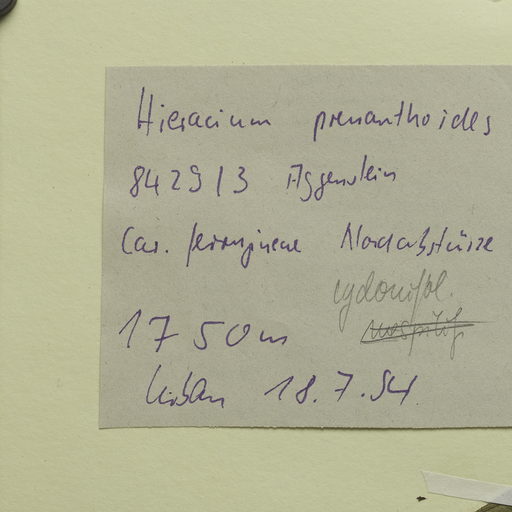 Hieracium prenanthoides
8429/3 Aggenstein
Car. ferrugineae Nordabstürze
cydonifol.
1750m
Urban 18.7.54.